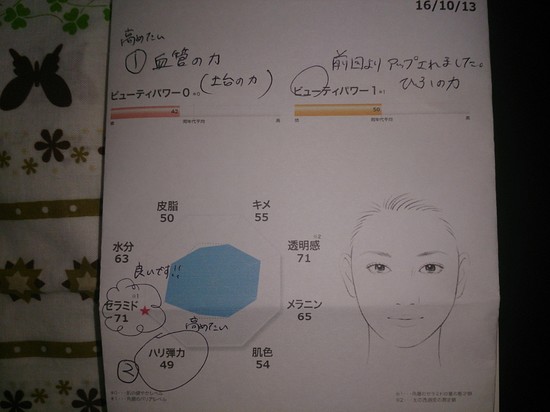 16/10/13
高めたい
① 血管の力
(土台の力)
前回より アップされました。
ひふの力
ビューティパワー0
42
ビューティパワー1
50
皮脂
50
キメ
55
水分
63
透明感
71
良いです!!
セラミド
71
メラニン
65
高めたい
② ハリ弾力
49
肌色
54